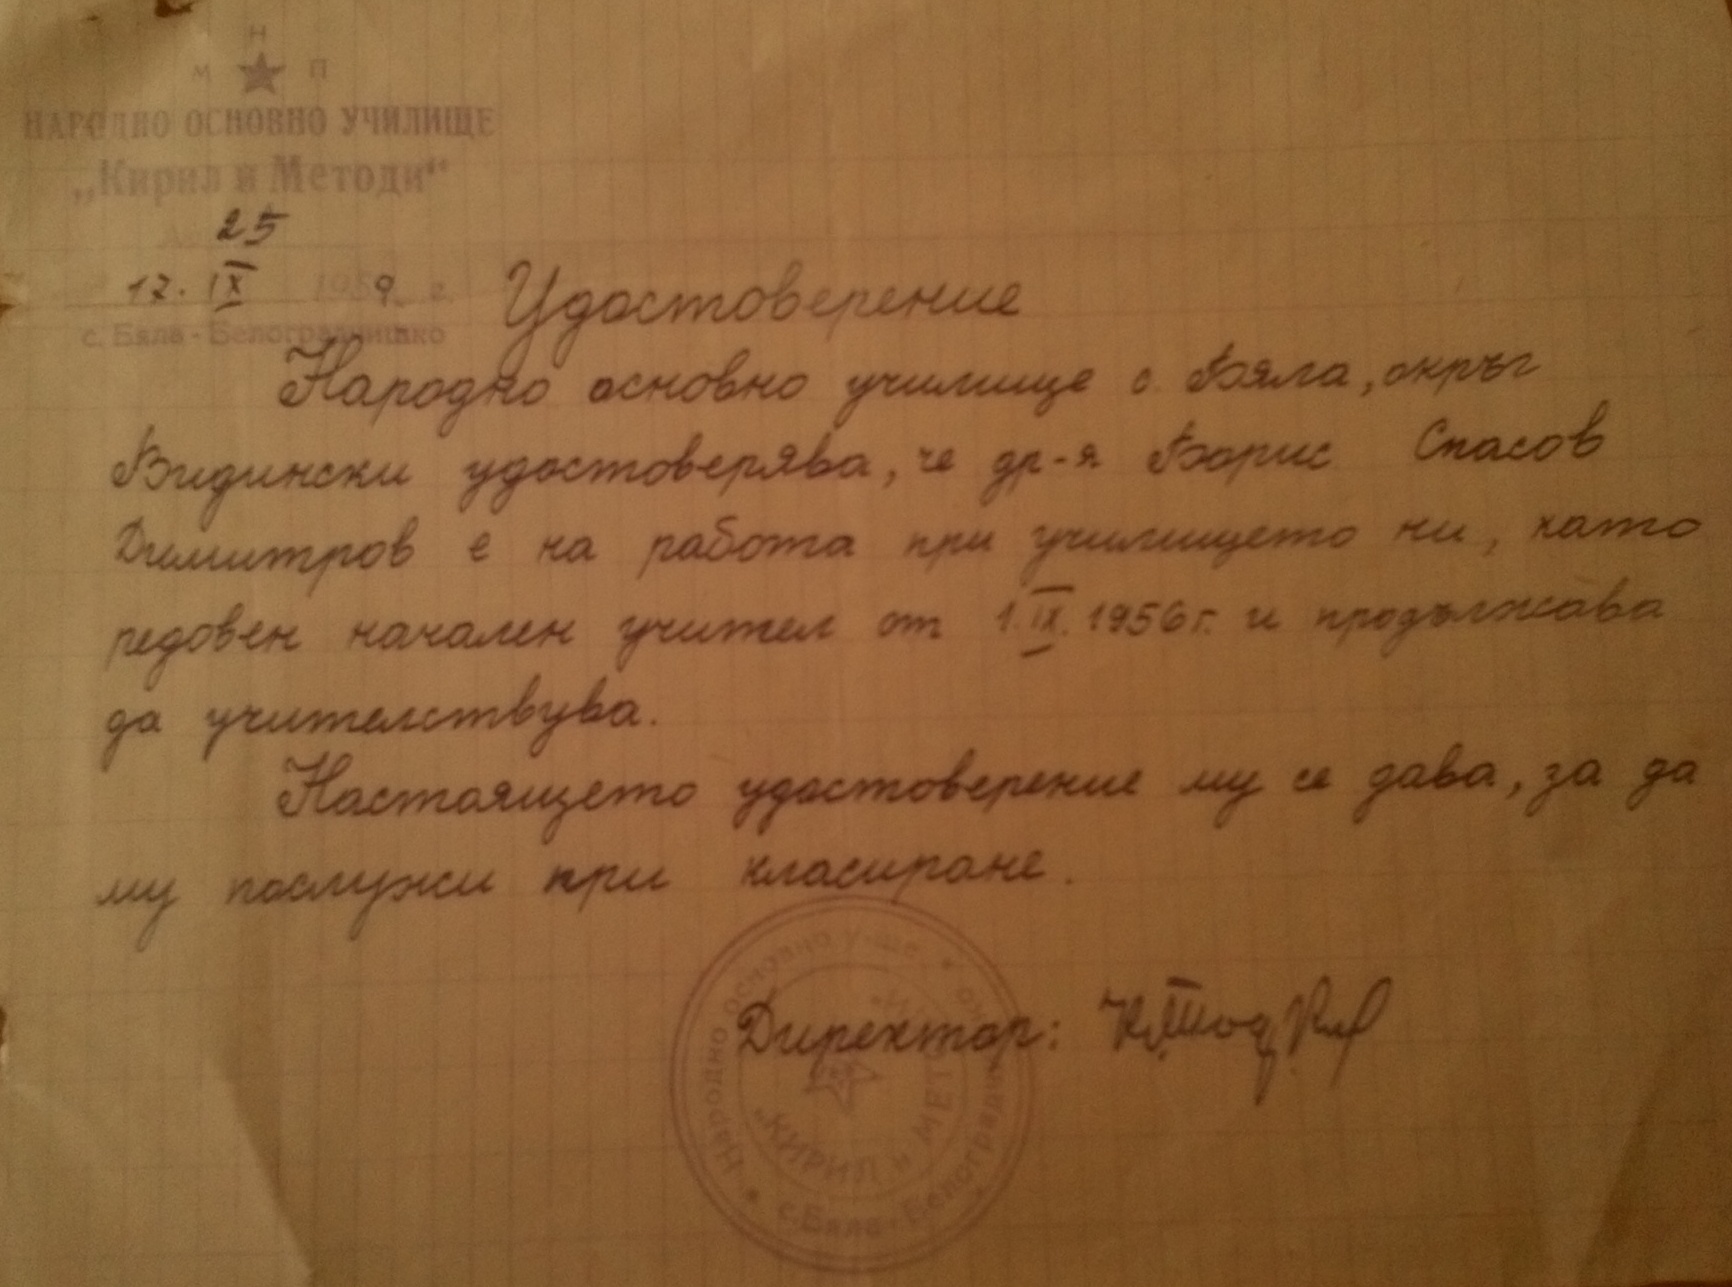 Н
М П
НАРОДНО ОСНОВНО УЧИЛИЩЕ
„Кирил и Методи“
25
17. IX 1959 г.
с. Бяла - Белоградчишко
Удостоверение
Народно основно училище с. Бяла, окръг
Видински удостоверява, че др-я Борис Спасов
Димитров е на работа при училището ни, като
редовен начален учител от 1.IX.1956 г. и продължава
да учителствува.
Настоящето удостоверение му се дава, за да
му послужи при класиране.
Директор:
Народно основно у-ще
„КИРИЛ и МЕТОДИ“
с. Бяла - Белоградчишко